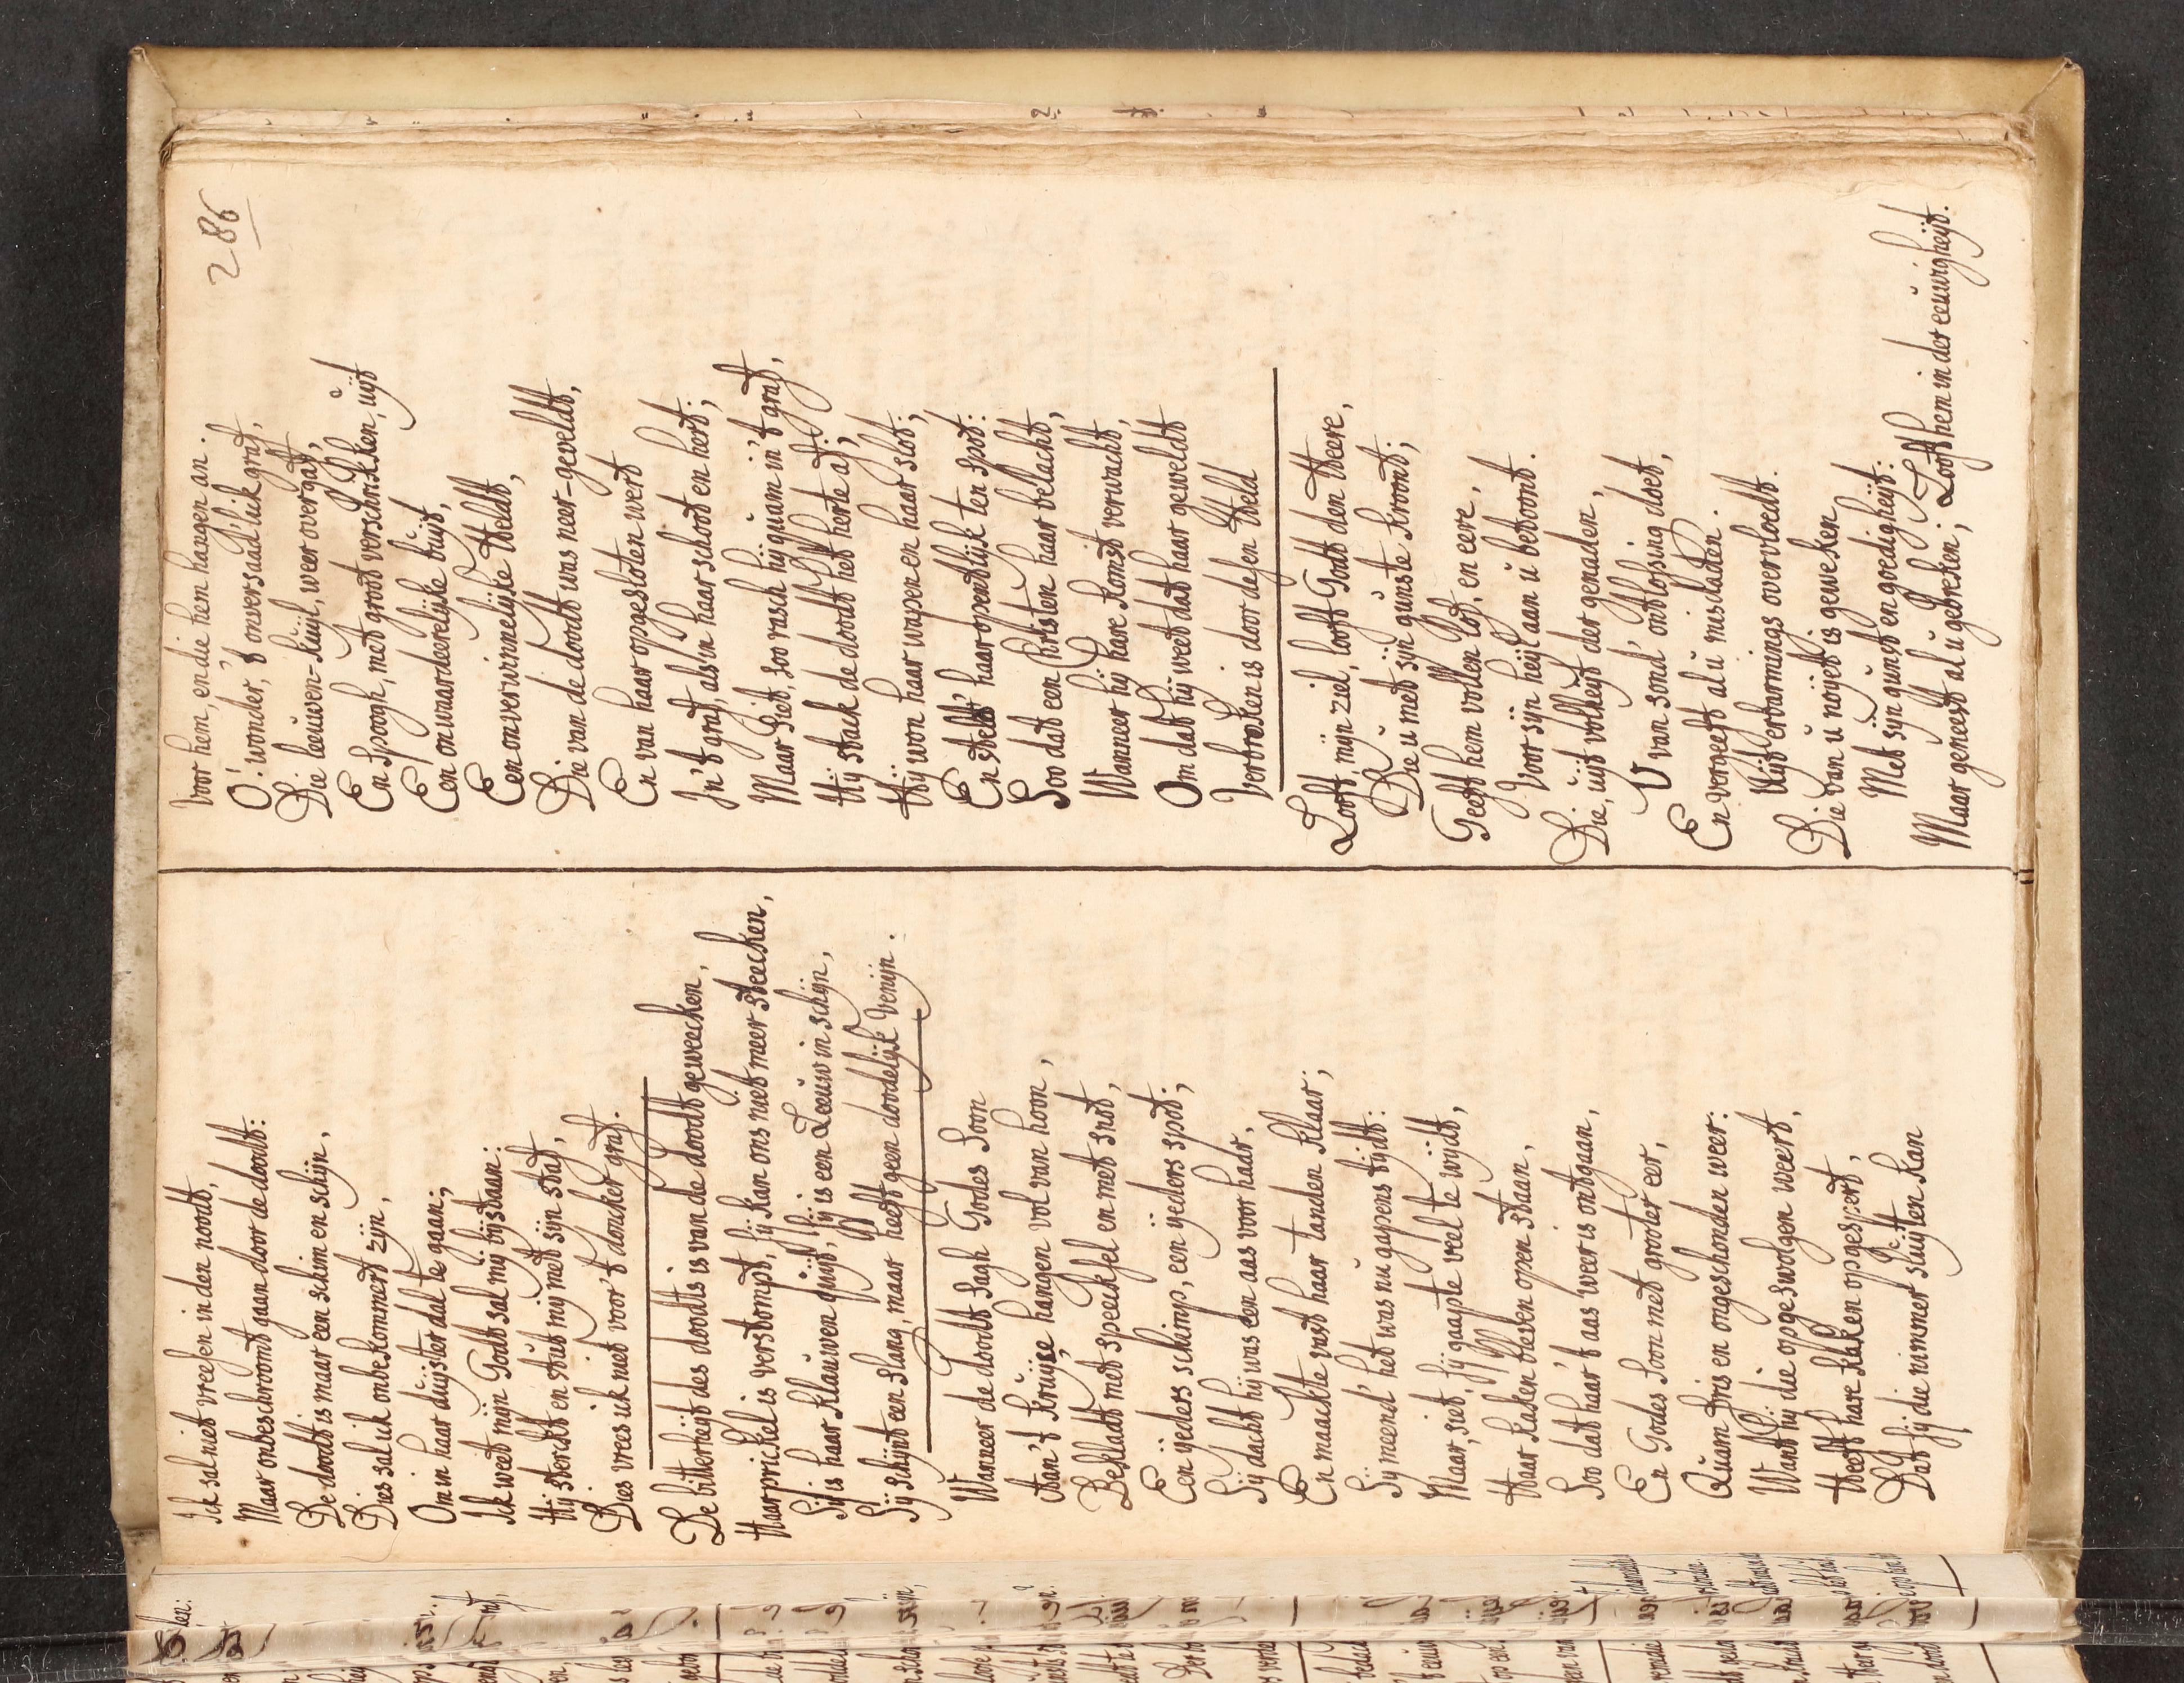 286
Ick sal niet vreesen in den noodt,
Maar onbeschroomt gaan door de doodt:
De doodt is maar een schim en schijn,
Dies sal ick onbekommert zijn,
Om in haar duijster dal te gaan;
Ick weet mijn Godt sal mij bijstaan:
Hij sterckt en stut mij met sijn staf,
Dies vrees ick niet voor 't doncker graf.
De bitterheijt des doodts is van de doodt geweecken,
Haar prickel is verstompt, sij kan ons niet meer steecken,
Sij is haar klauwen quijt, sij is een Leeuw in schijn,
Sij schijnt een slang, maar heeft geen doodelijk venijn.
Wanneer de doodt sagh Godes Soon
Aan 't kruijse hangen vol van hoon,
Bekladt met speecksel en met snot,
Een ijders schimp, een ijders spot;
Sij dacht hij was een aas voor haar,
En maackte vast haar tanden klaar;
Sij meend' het was nu gapens tijdt:
Maar, siet, sij gaapte veel te wijdt,
Haar kaken bleven open staan,
Soo dat haar 't aas weer is ontgaan,
En Godes Soon met grooter eer,
Quam fris en ongeschonden weer:
Want hij die opgeswolgen weert,
Heeft hare kaken opgespert,
Dat sij die nimmer sluijten kan
Voor hem, en die hem hangen an.
O! wonder, 't onversaadlik graf,
Die leeuwen-kuijl, weer over gaf,
En spoogh, met groot verschrikken, uijt
Een onwaardeerelijke buijt,
Een onverwinnelijke Heldt,
Die van de doodt was neer-geveldt,
En van haar opgesloten wert
In 't graf, als in haar schoot en hert;
Maar siet, soo rasch hij quam in 't graf,
Hij stack de doodt het herte af,
Hij won haar wapen en haar slot;
En steldt' haar opentlijk ten spot:
Soo dat een Christen haar belacht,
Wanneer hij hare komst verwacht,
Om dat hij weet dat haar geweldt
Verbroken is door desen Held
Looft, mijn ziel, looft Godt den Heere,
Die u met sijn gunste kroont;
Geeft hem vollen lof, en eere,
Voor sijn heijl aan u betoont.
Die, uijt volheijt der genaden,
U van sond' ontlossing doet,
En vergeeft al u misdaden.
Uijt erbarmings overvloedt.
Die van u noijt is geweken
Met sijn gunst en goedigheijt:
Maar geneest al u gebreken; Looft hem in der eeuwigheijt.